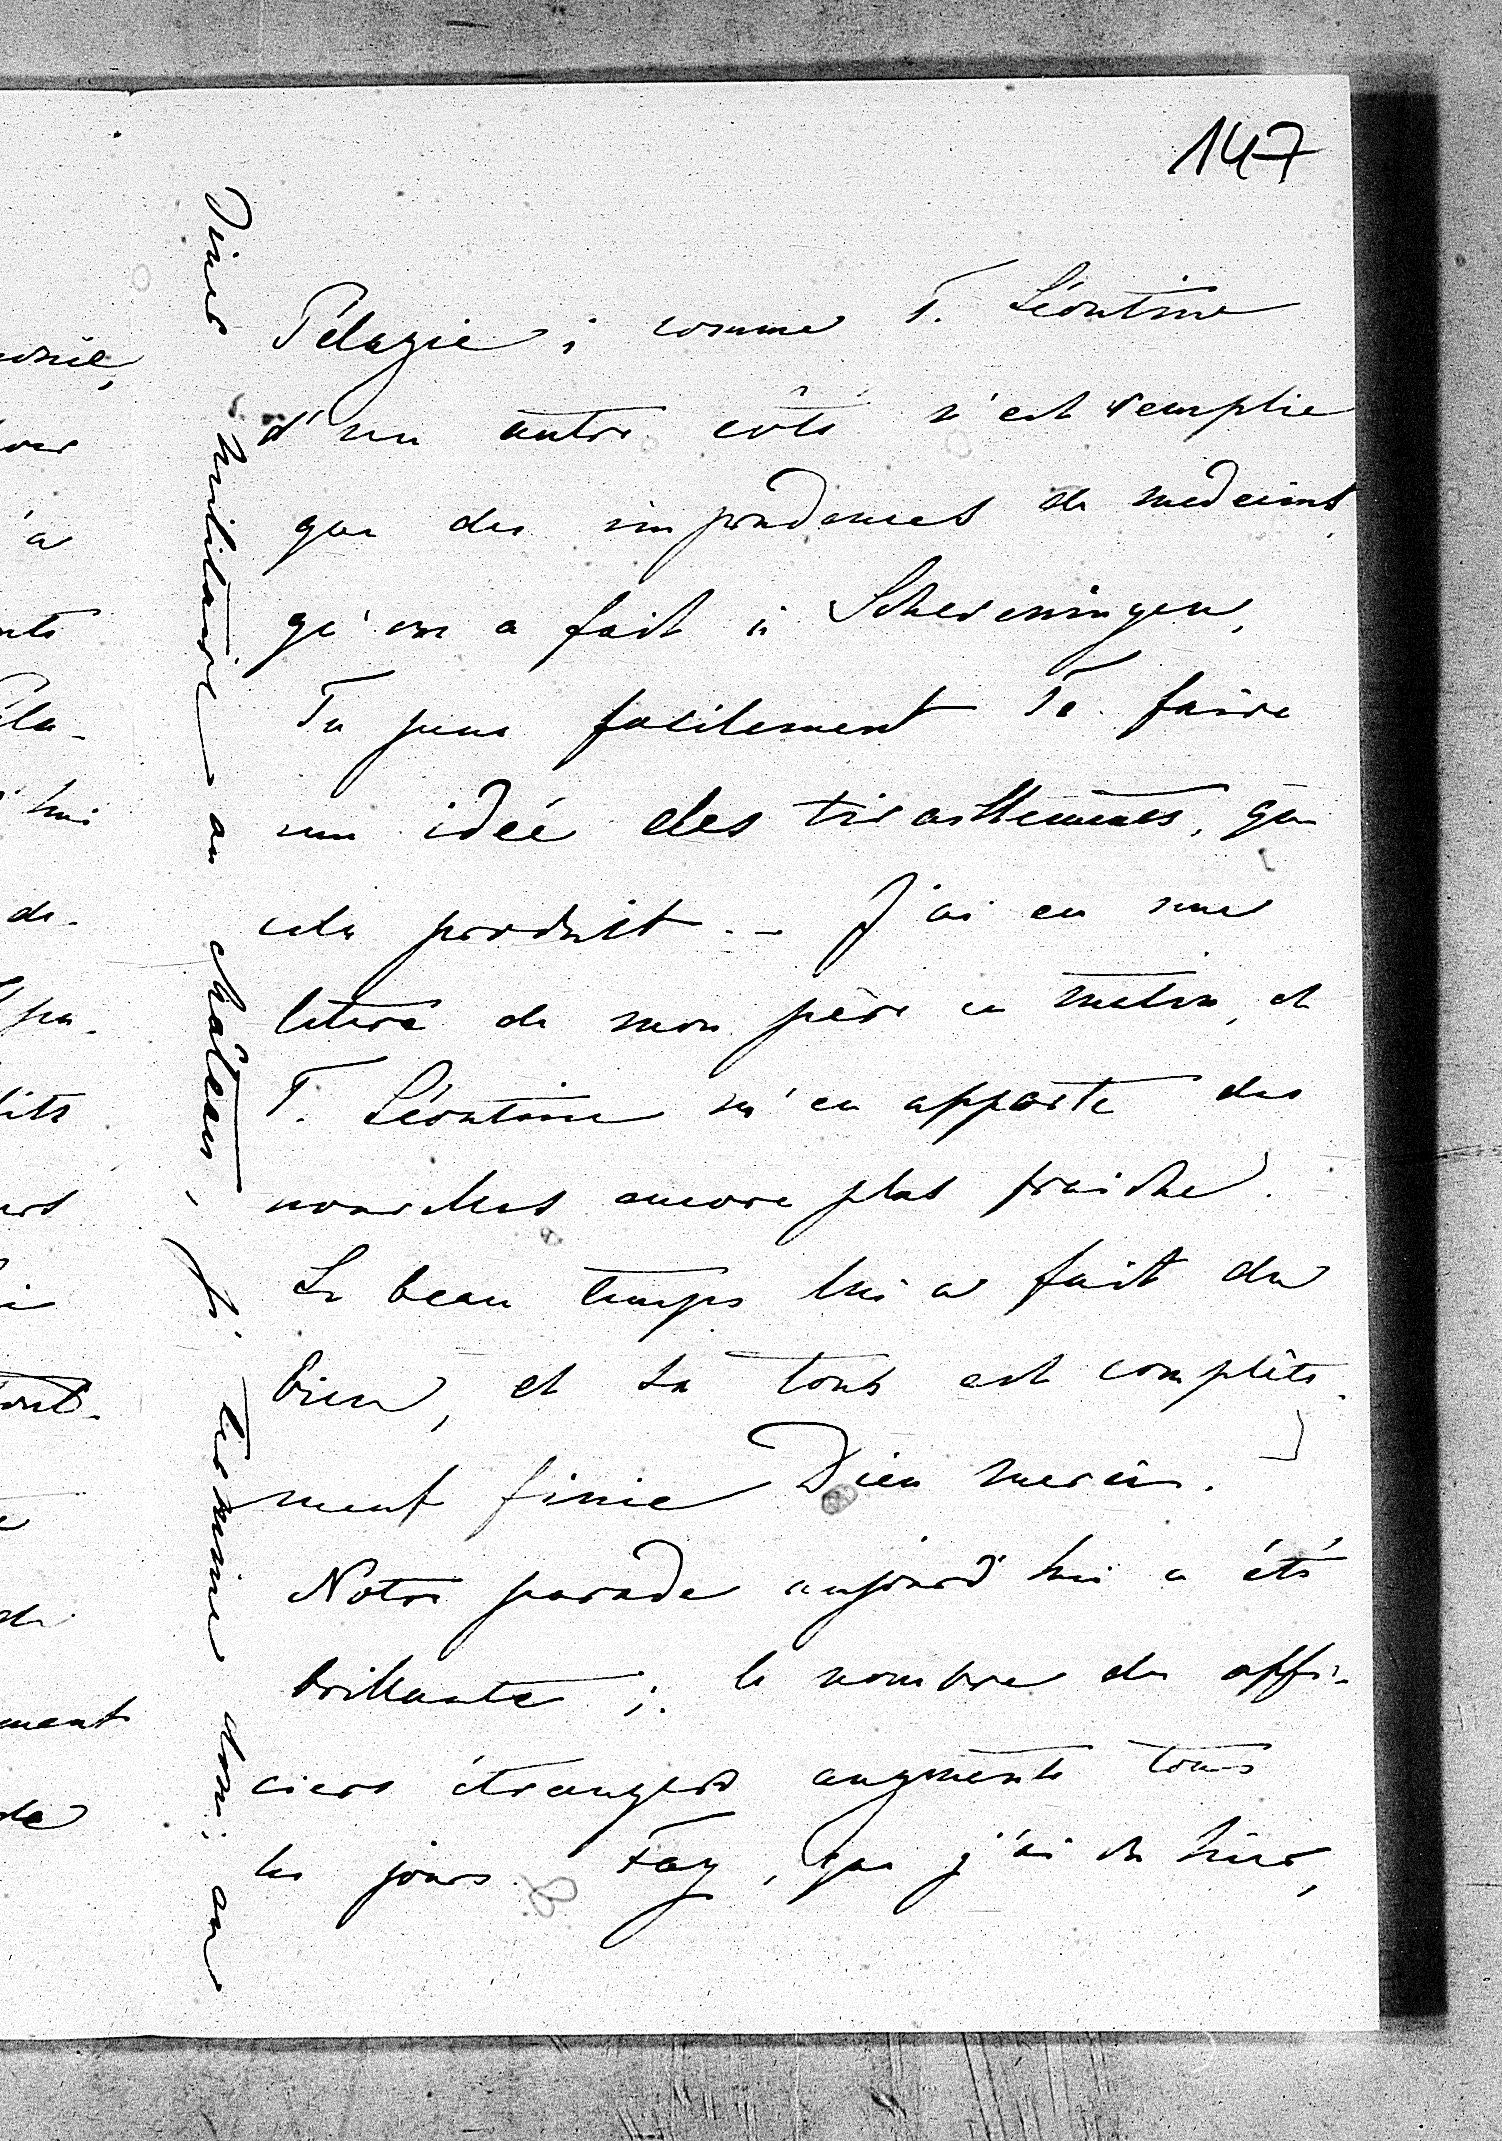 147
Pélagie ; comme T. Léontine
d'un autre côté n'est remplie
que des imprudences de medecins,
qu'on a fait à Scheveningen.
Tu peux facilement Te faire
une idée des tiraillements, que
cela produit. – J'ai eu une
lettre de mon père ce matin, et
T. Léontine m'en apporte des
nouvelles encore plus fraiches.
Le beau temps lui a fait du
bien, et sa toux est complète-
ment finie Dieu merci.
Notre parade aujourd'hui a été
brillante ; le nombre des offi-
ciers étrangers augmente tous
les jours. Fay, que j'ai vu hier,
Diner militaire au château, je termine donc; au